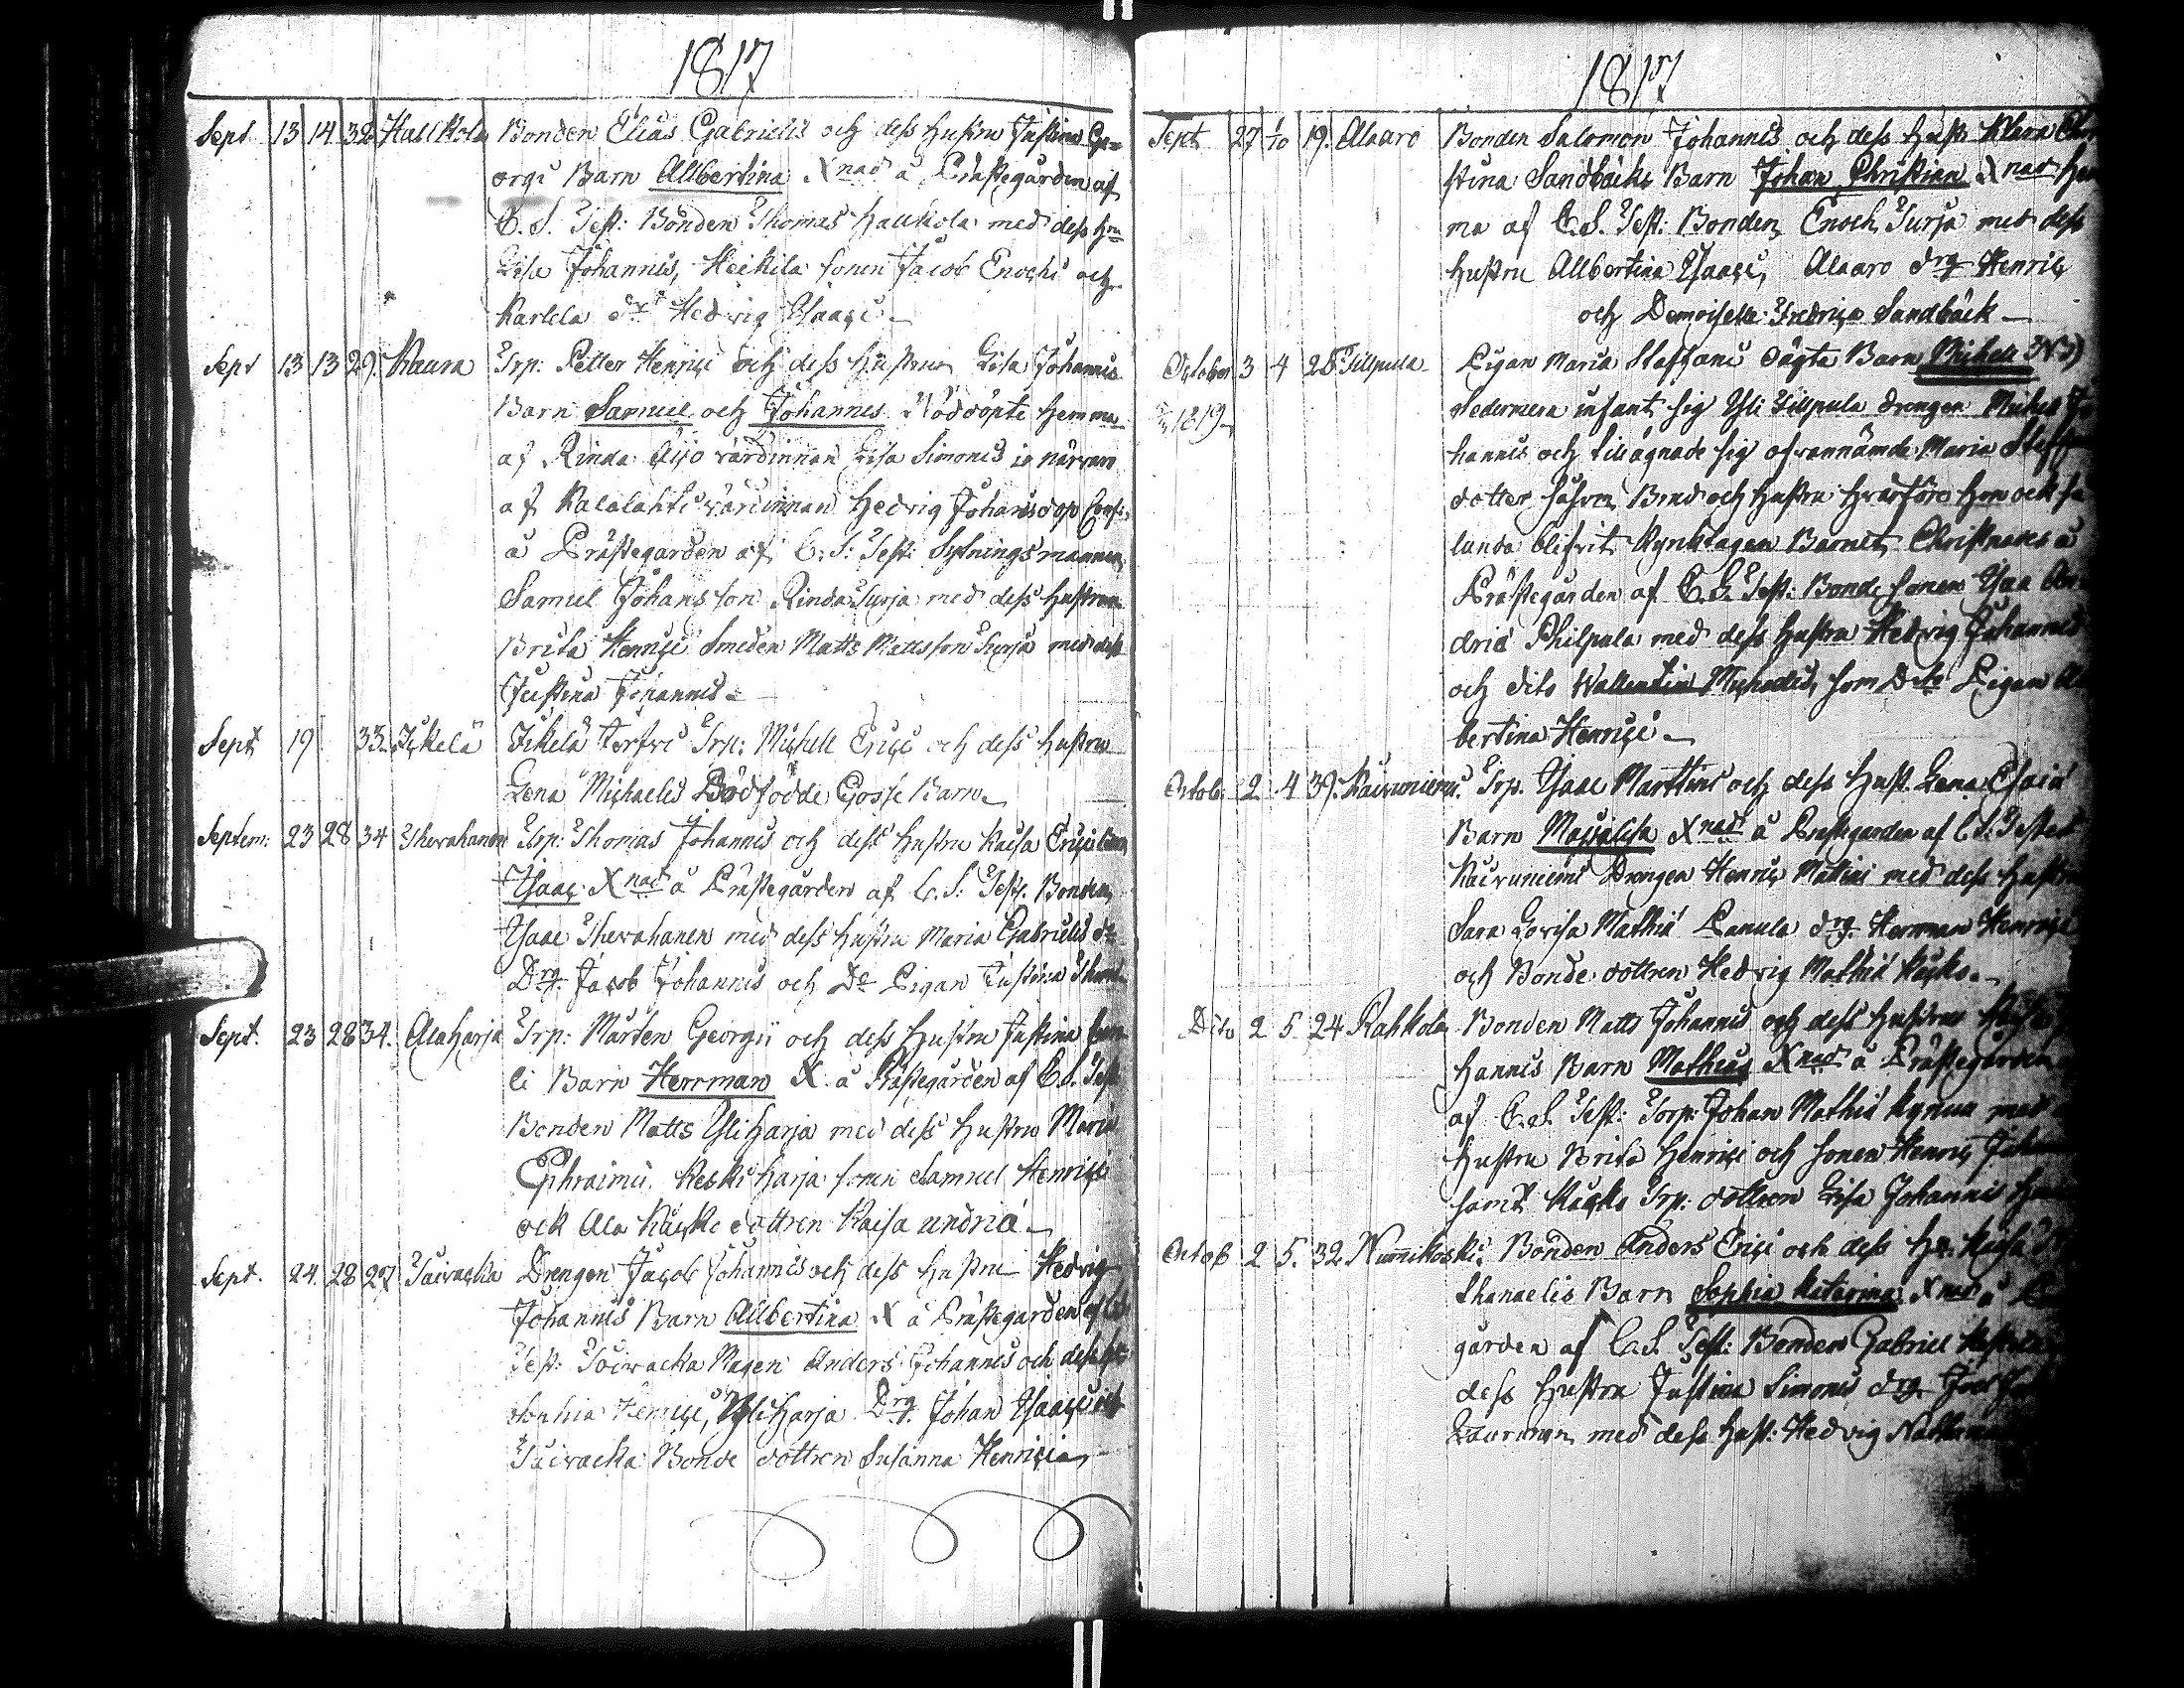 1817
Sept 13 14 32 Hallkola Bonden Elias Gabrielis och dess hustru Justina Ge=
orgi Barn Allbertina Xnad å Prästegården af
C. S. Test: Bonden Thomas Hallkola med dess Hru
Lisa Johannis, Heikila sonen Jacob Enochi och
Karlela dr Hedvig Isaaci
Sept 13 13 29. Kaura Trp: Petter Henrici och dess hustru Lisa Johannis
Barn Samuel och Johannes Nöddöpte hemma
af Rinda Äijö värdinnan Lisa Simonis i närvaro
af Kalalahti värdinnan Hedvig Johanis dop Conf:
å Prästegården af C: S: Test: Sytningsmannen
Samuel Johansson Rinda Turja med dess hustru
Brita Henrici Smeden Matts Mattsson Turja med dess
Justina Johannis
Sept 19 33. Ickelä Ickelä torfvi Trp: Michell Erici och dess hustru
Lena Michaelis Dödfödde Gosse Barn
Septem: 23 28 34 Thevahanen Trp: Thomas Johannis och dess hustru Kaisa Erici Barn
Isaac Xnad å Prästegården af C. S: Test. Bonden
Isaac Thevahanen med dess hustru Maria Gabrielis do
Drg. Jacob Johannis och Do Pigan Justina
Sept. 23 28 34. AlaHarja Trp: Mårten Georgii och dess hustru Justina
li Barn Herrman X å Prästegården af C. S. Test
Bonden Matts YliHarja med dess hustru Maria
Ephraimi. Keski Harja sonen Samuel Henrici
ock Ala Käcko dottren Kaisa andriæ
Sept. 24. 28 27 Taivacka Drengen Jacob Johannis och dess hustru Hedvig
Johannis Barn Allbertina X å Prästegården af C. S.
Test: Taivacka Magen Anders Johannis och dess h:
Sophia Henrici, YliHarja Drg. Johan Isaaci och
Taivacka Bonde dottren Susanna Henricia
1817
Sept 27 1/10 19. Alaaro Bonden Salomon Johannis och dess hust: Klara Chri
stina Sandbäcks Barn Johan Christian Xnad hem
ma af C. S. Test: Bonden Enoch Turja med dess
hustru Allbertina Isaaci, Alaaro drg Henric
och Demoiselle Fredrica Sandbäck
October 3 4 25 Tillpula Pigan Maria Staffans oägta Barn Michell NB)
1819 Sedermera infant sig Yli Tillpula drengen Michel Jo
hannis och tillägnade sig ofvannämde Maria Steffans
dotter såsom Bond och hustru hvarföre hon ock så
lunda blifvit Kyrktagen Barnet Christnades å
Prästegården af C. S. Test: Bonde sonen Isaa An
driæ Philpula med dess hustru Hedvig Johannis
och dito Wallentin Michaelis, som Dito Pigan Al
bertina Henrici
Octob: 2 4 39. Kaivuniemi. Trp. Isaac Marttins och dess hust. Lena Esaiæ
Barn Majalisa Xnad å Prästegården af C. S: Test
Kaivuniemi Drengen Henric Mathiæ med dess hustru
Sara Lovisa Mathiæ Panula drg. Herrman Henrici
och Bonde dottren Hedvig Mathiæ Käcko
Dito 2 5 24 Rahkola Bonden Matts Johannis och dess hustru
hannis Barn Mathias Xnad å Prästegården
af C. S. Test: Torp: Johan Mathiæ Kynnä med
hustru Brita Henrici och sonen Henric
samt Käcko Trp: dottren Lisa Johannis
Octob 2 5. 32 Nurmikoski Bonden Anders Erici och dess H: Kaisa
thanaelis Barn Sophia Katarina Xnad å
gården af C. S. Test: Bonden Gabriel
dess hustru Justina Simonis drg.
med dess hust: Hedvig